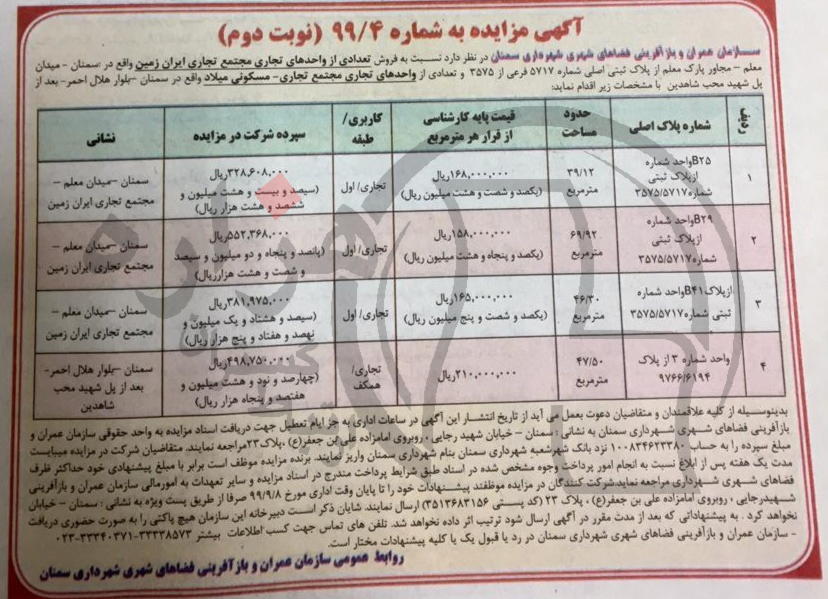 آگهی مزایده به شماره ۹۹/۴ (نوبت دوم)
سازمان عمران و بازآفرینی فضاهای شهری شهرداری سمنان در نظر دارد نسبت به فروش تعدادی از واحدهای تجاری مجتمع تجاری ایران زمین واقع در سمنان - میدان
معلم - مجاور پارک معلم از پلاک ثبتی اصلی شماره ۵۷۱۷ فرعی از ۳۵۷۵ و تعدادی از واحدهای تجاری مجتمع تجاری- مسکونی میلاد واقع در سمنان -بلوار هلال احمر- بعد از
پل شهید محب شاهدین با مشخصات زیر اقدام نماید:
ردیف شماره پلاک اصلی حدود مساحت قیمت پایه کارشناسی از قرار هر مترمربع کاربری/ طبقه سپرده شرکت در مزایده نشانی
۱ B۲۵واحد شماره ازپلاک ثبتی شماره۳۵۷۵/۵۷۱۷ ۳۹/۱۲ مترمربع ۱۶۸,۰۰۰,۰۰۰ریال (یکصد و شصت و هشت میلیون ریال) تجاری/ اول ۳۲۸,۶۰۸,۰۰۰ریال (سیصد و بیست و هشت میلیون و ششصد و هشت هزار ریال) سمنان -میدان معلم - مجتمع تجاری ایران زمین
۲ B۲۹واحد شماره ازپلاک ثبتی شماره۳۵۷۵/۵۷۱۷ ۶۹/۹۲ مترمربع ۱۵۸,۰۰۰,۰۰۰ریال (یکصد و پنجاه و هشت میلیون ریال) تجاری/ اول ۵۵۲,۳۶۸,۰۰۰ریال (پانصد و پنجاه و دو میلیون و سیصد و شصت و هشت هزارریال) سمنان -میدان معلم - مجتمع تجاری ایران زمین
۳ ازپلاکB۴۱واحد شماره ثبتی شماره۳۵۷۵/۵۷۱۷ ۴۶/۳۰ مترمربع ۱۶۵,۰۰۰,۰۰۰ریال (یکصد و شصت و پنج میلیون ریال) تجاری/ اول ۳۸۱,۹۷۵,۰۰۰ریال (سیصد و هشتاد و یک میلیون و نهصد و هفتاد و پنج هزار ریال) سمنان -میدان معلم - مجتمع تجاری ایران زمین
۴ واحد شماره ۳ از پلاک ۹۷۶۶/۶۱۹۴ ۴۷/۵۰ مترمربع ۲۱۰,۰۰۰,۰۰۰ریال تجاری/ همکف ۴۹۸,۷۵۰,۰۰۰ریال (چهارصد و نود و هشت میلیون و هفتصد و پنجاه هزار ریال) سمنان -بلوار هلال احمر- بعد از پل شهید محب شاهدین
بدینوسیله از کلیه علاقمندان و متقاضیان دعوت بعمل می آید از تاریخ انتشار این آگهی در ساعات اداری به جز ایام تعطیل جهت دریافت اسناد مزایده به واحد حقوقی سازمان عمران و
بازآفرینی فضاهای شهری شهرداری سمنان به نشانی : سمنان – خیابان شهید رجایی ، روبروی امامزاده علی بن جعفر(ع) ، پلاک۲۳مراجعه نمایند. متقاضیان شرکت در مزایده میبایست
مبلغ سپرده را به حساب ۱۰۰۸۳۴۶۲۳۳۸۰ نزد بانک شهرشعبه شهرداری سمنان بنام شهرداری سمنان واریز نمایند. برنده مزایده موظف است برابر با مبلغ پیشنهادی خود حداکثر ظرف
مدت یک هفته پس از ابلاغ نسبت به انجام امور پرداخت وجوه مشخص شده در اسناد طبق شرایط پرداخت مندرج در اسناد مزایده و سایر تعهدات به امورمالی سازمان عمران و بازآفرینی
فضاهای شهری شهرداری مراجعه نماید.شرکت کنندگان در مزایده موظفند پیشنهادات خود را تا پایان وقت اداری مورخ ۹۹/۹/۸ صرفا از طریق پست ویژه به نشانی : سمنان – خیابان
شهیدرجایی ، روبروی امامزاده علی بن جعفر(ع) ، پلاک ۲۳ (کد پستی ۳۵۱۳۶۸۳۱۵۶) ارسال نمایند. شایان ذکر است دبیرخانه این سازمان هیچ پاکتی را به صورت حضوری دریافت
نخواهد کرد . به پیشنهاداتی که بعد از مدت مقرر در آگهی ارسال شود ترتیب اثر داده نخواهد شد. تلفن های تماس جهت کسب اطلاعات بیشتر ۳۳۳۳۸۵۷۳-۳۳۳۴۰۳۷۱-۰۲۳
- سازمان عمران و بازآفرینی فضاهای شهری شهرداری سمنان در رد یا قبول یک یا کلیه پیشنهادات مختار است.
روابط عمومی سازمان عمران و بازآفرینی فضاهای شهری شهرداری سمنان